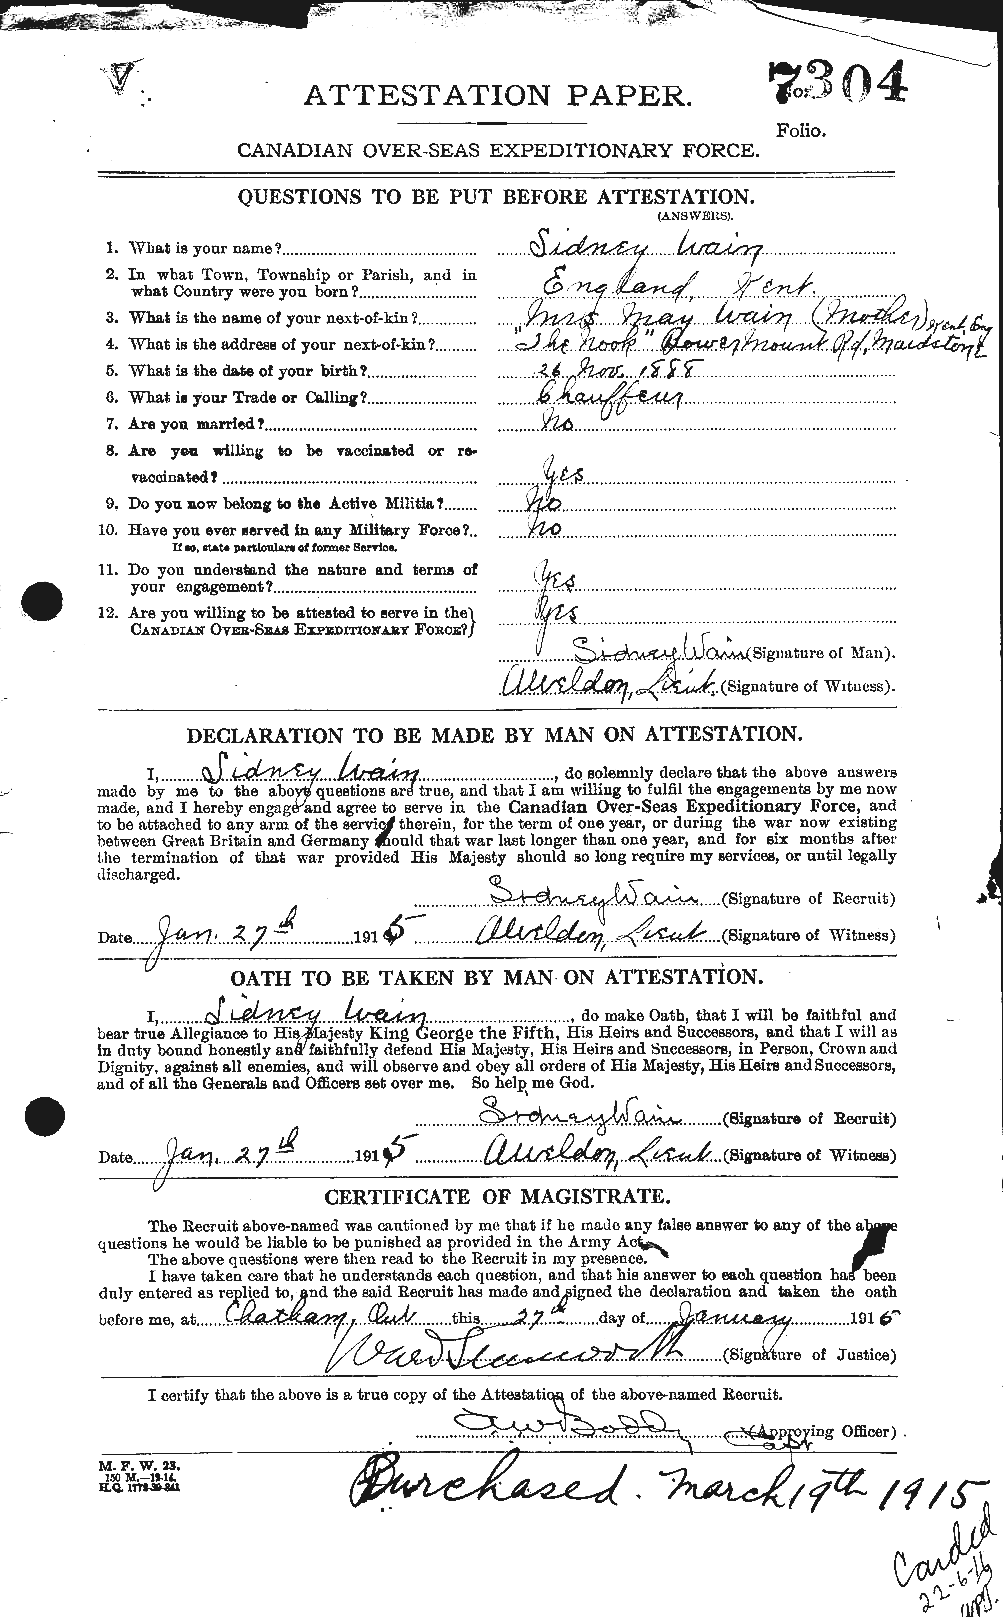 7304
No.
ATTESTATION PAPER.
Folio.
CANADIAN OVER-SEAS EXPEDITIONARY FORCE.
QUESTIONS TO BE PUT BEFORE ATTESTATION.
(ANSWERS).
1. What is your name? Sidney Wain
2. In what Town, Township or Parish, and in
what Country were you born? England, Kent.
3. What is the name of your next-of-kin? Mrs May Wain (Mother)
4. What is the address of your next-of-kin? "The Nook" Bower Mount Rd, Maidstone Kent, Eng
5. What is the date of your birth? 26 Nov. 1888
6. What is your Trade or Calling? Chauffeur
7. Are you married? No
8. Are you willing to be vaccinated or re-
vaccinated? Yes
9. Do you now belong to the Active Militia? No
10. Have you ever served in any Military Force? No
If so, state particulars of former Service.
11. Do you understand the nature and terms of
your engagement? Yes
12. Are you willing to be attested to serve in the
CANADIAN OVER-SEAS EXPEDITIONARY FORCE? Yes
Sidney Wain (Signature of Man).
AWeldon, Lieut. (Signature of Witness).
DECLARATION TO BE MADE BY MAN ON ATTESTATION.
I, Sidney Wain, do solemnly declare that the above answers
made by me to the above questions are true, and that I am willing to fulfil the engagements by me now
made, and I hereby engage and agree to serve in the Canadian Over-Seas Expeditionary Force, and
to be attached to any arm of the service therein, for the term of one year, or during the war now existing
between Great Britain and Germany should that war last longer than one year, and for six months after
the termination of that war provided His Majesty should so long require my services, or until legally
discharged.
Sidney Wain (Signature of Recruit)
Date Jan. 27th 1915 AWeldon, Lieut (Signature of Witness)
OATH TO BE TAKEN BY MAN ON ATTESTATION.
I, Sidney Wain, do make Oath, that I will be faithful and
bear true Allegiance to His Majesty King George the Fifth, His Heirs and Successors, and that I will as
in duty bound honestly and faithfully defend His Majesty, His Heirs and Successors, in Person, Crown and
Dignity, against all enemies, and will observe and obey all orders of His Majesty, His Heirs and Successors,
and of all the Generals and Officers set over me. So help me God.
Sidney Wain (Signature of Recruit)
Date Jan. 27th 1915 AWeldon, Lieut (Signature of Witness)
CERTIFICATE OF MAGISTRATE.
The Recruit above-named was cautioned by me that if he made any false answer to any of the above
questions he would be liable to be punished as provided in the Army Act.
The above questions were then read to the Recruit in my presence.
I have taken care that he understands each question, and that his answer to each question has been
duly entered as replied to, and the said Recruit has made and signed the declaration and taken the oath
before me, at Chatham, Ont this 27th day of January 1915
Ward Stanworth (Signature of Justice)
I certify that the above is a true copy of the Attestation of the above-named Recruit.
(Approving Officer)
Capt
M. F. W. 23.
150 M.—12-14.
H.Q. 1772-39-841
Purchased. March 19th 1915
Carded
22-6-16